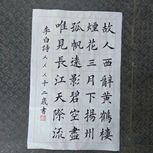 故人西辭黃鶴樓
煙花三月下揚州
孤帆遠影碧空盡
唯見長江天際流
李白詩 乂乂乂十二歲書